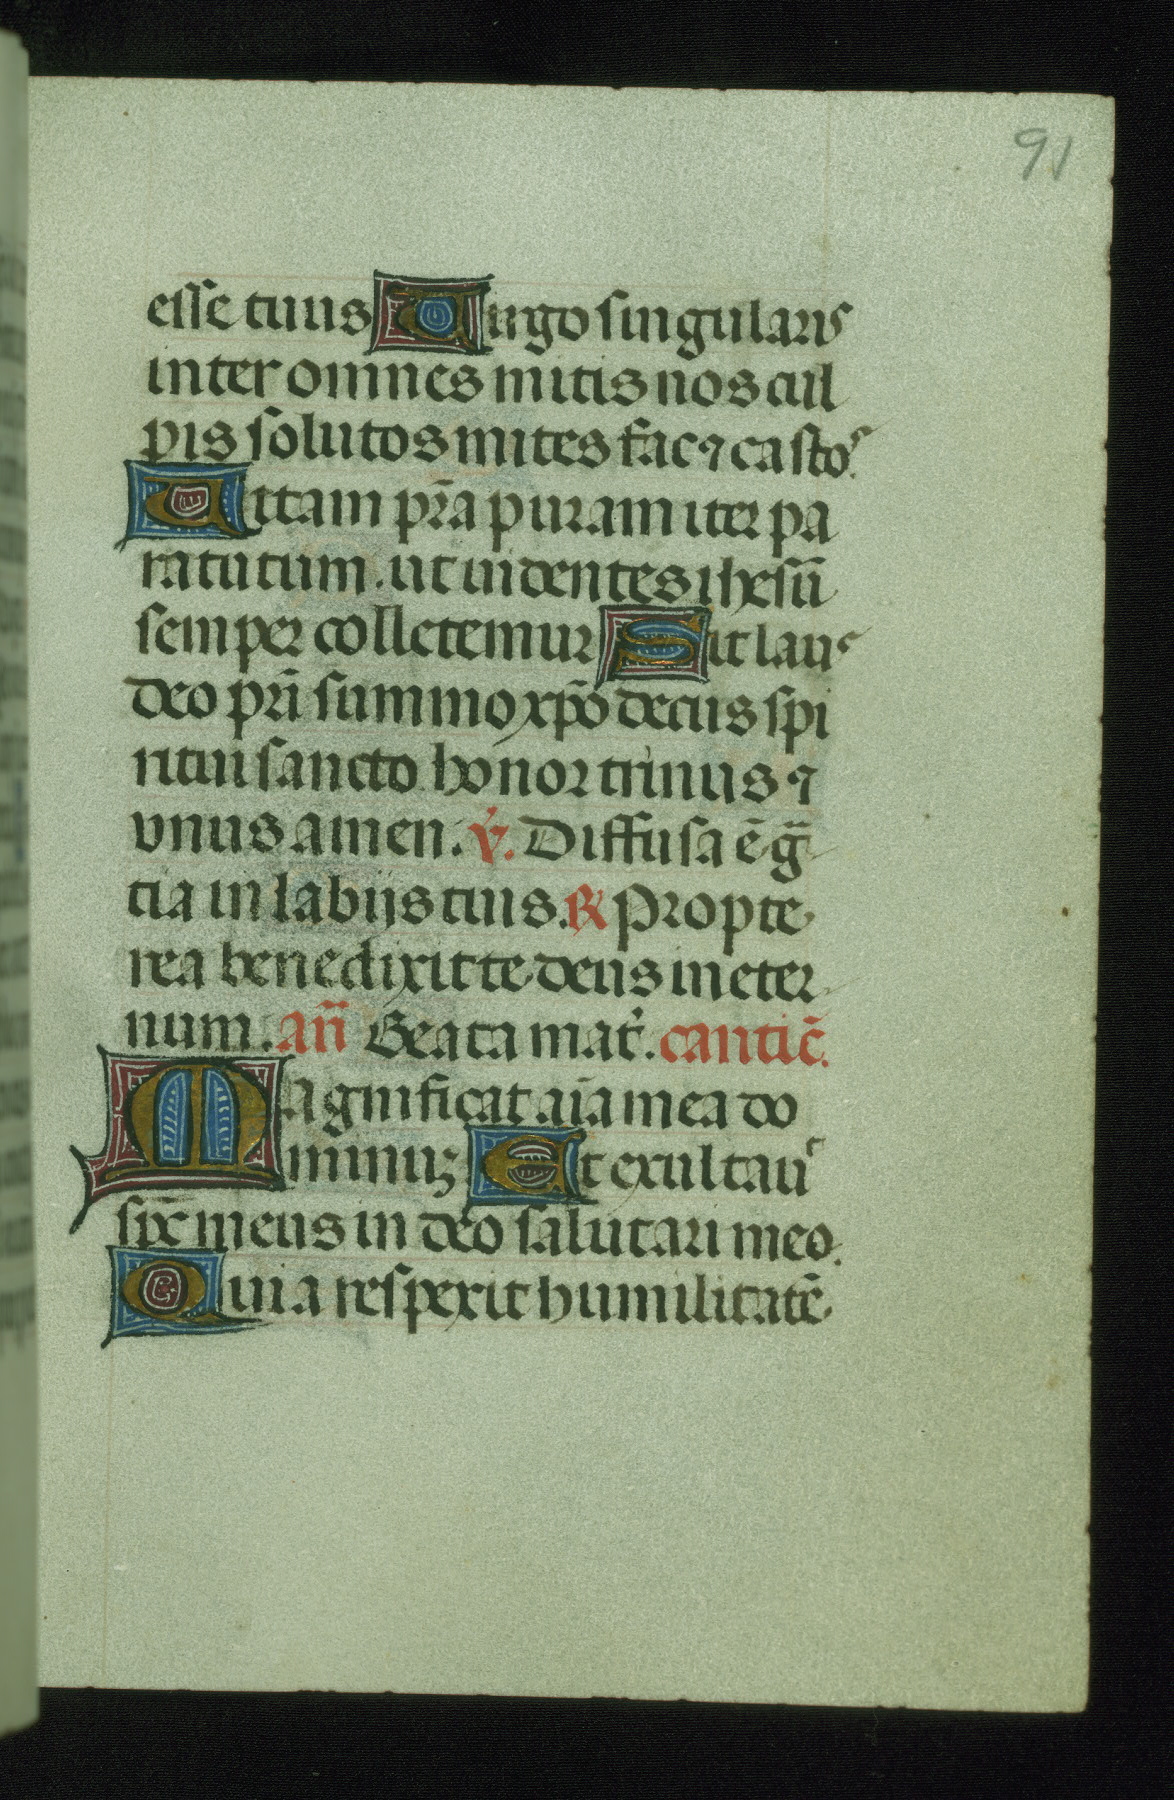 91
esse tuus Uirgo singularis
inter omnes mitis nos cul
pis solutos mites fac ⁊ castos.
Uitam pr̄a puram iter pa
ra tutum. ut uidentes ihesū
semper colletemur Sit laus
deo pr̄i summo xp̄o decus spi
ritui sancto honor trinus ⁊
vnus amen. v̓. Diffusa ē gr̄a
tia in labijs tuis. ℟ Propte
rea benedixit te deus in eter
num. an̄ Beata mat̓. cantic̄.
Magnificat aīa mea do
minuꝫ Et exultauͥ
sp̄c meus in deo salutari meo.
Quia respexit humilitatē